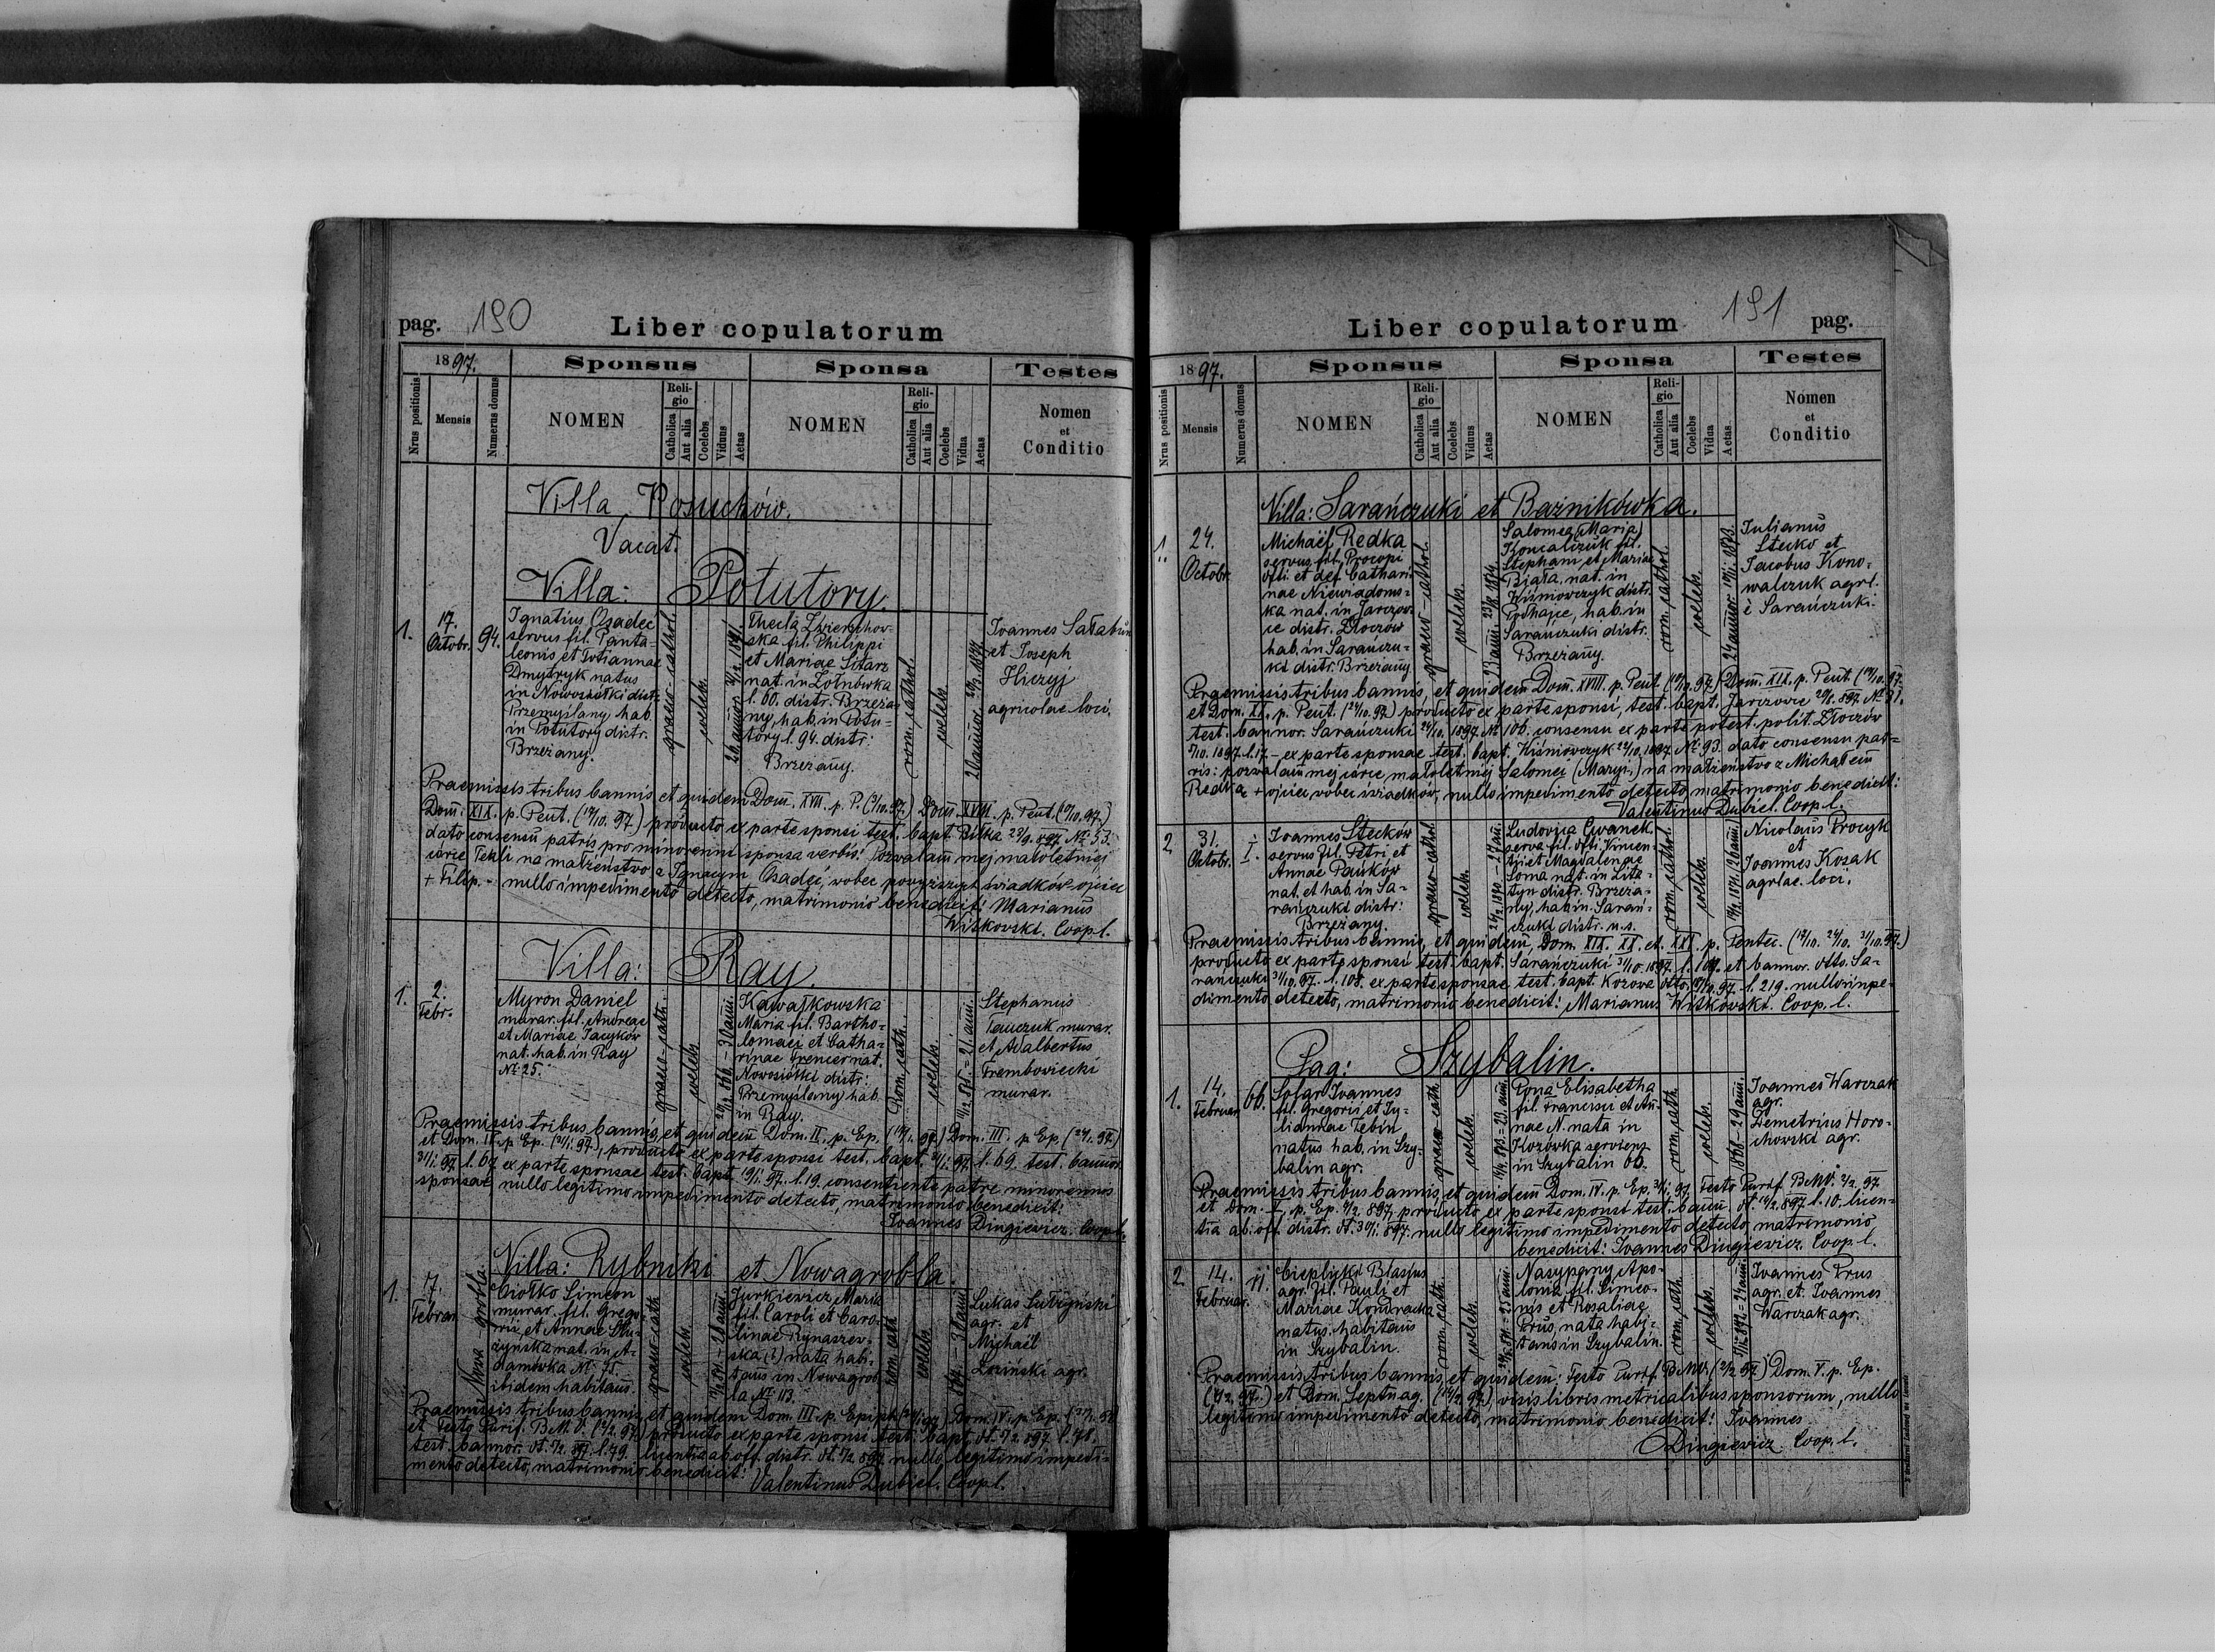 pag. 190
Liber copulatorum
1897.
Sponsus
Sponsa
Testes
Nrus positionis
Mensis
Numerus domus
NOMEN
Religio
Catholica
Aut alia
Coelebs
Viduus
Aetas
NOMEN
Religio
Catholica
Aut alia
Coelebs
Vidua
Aetas
Nomen
et
Conditio
Villa Posuchów.
Vacat.
Villa: Potutory.
1.
17.
Octobr.
94.
Ignatius Osadec
servus fil. Panta-
leonis et Tatiannae
Dmytryk natus
in Nowosiółki distr.
Przemyślany hab.
in Potutory distr.
Brzeżany.
graeco-cathol.
coelebs.
Thecla Zwierzchow-
ska fil. Philippi
et Mariae Sitarz
nat. in Żołnówka
l. 60. distr. Brzeża-
ny, hab. in Potu-
tory l. 94. distr:
Brzeżany.
rom. cathol.
coelebs.
Joannes Sałabun
et Joseph
Hiczyj
agricolae loci.
Praemissis tribus bannis et quidem Dom. XVII. p. P. (3/10. 97.) Dom. XVIII. p. Pent. (10/10. 97.)
Dom. XIX. p. Pent. (17/10. 97.) producto ex parte sponsi test. bapt. Biłka 23/9. 897. № 53.
dato consensu patris pro minorenni sponsa verbis: Pozwalam mej małoletniej
córce Tekli na małżeństwo z Ignacym Osadec, wobec powyższych świadków ojciec
+ Filip. - nullo impedimento detecto, matrimonio benedicit: Marianus
Witkowski. Coop. l.
Villa: Ray.
1.
2.
Febr.
Myron Daniel
murar. fil. Andreae
et Mariae Jacyków
nat. hab. in Ray
№ 25.
graeco-cath.
coelebs
Kawałkowska
Maria fil. Bartho-
lomaei et Catha-
rinae Grencer nat.
Nowosiółki distr:
Przemyślany hab.
in Ray.
Rom. cath.
coelebs.
Stephanus
Tanczuk murar.
et Adalbertus
Trembowiecki
murar.
Praemissis tribus bannis, et quidem Dom. II. p. Ep. (17/1. 97.) Dom. III. p. Ep. (24/1. 97.)
et Dom. IV. p. Ep. (31/1. 97.), producto ex parte sponsi test. bapt. 31/1. 97. l. 69. test. bannor.
31/1. 97. l. 67. ex parte sponsae test. bapt. 19/1. 97. l. 19. consentiente patre minorennis
sponsae, nullo legitimo impedimento detecto, matrimonio benedicit:
Joannes Dingiewicz. Coop. l.
Villa: Rybniki et Nowagrobla.
1.
7.
Februar.
Nowa grobla.
Ciołko Simeon
murar. fil. Grego-
rii, et Annae
nat. in A-
damówka № 75.
ibidem habitans.
graeco-cath
coelebs.
Jurkiewicz Maria
fil. Caroli et Caro-
linae Rynaszew-
ska (?) nata habi-
tans in Nowagrob-
la № 113.
rom. cath.
coelebs.
Lukas
agr. et
Michaël
Łoziński agr.
Praemissis tribus bannis, et quidem Dom. III. p. Epiph. (24/1. 97) Dom. IV. p. Ep. (31/1. 97)
et Festo Purif. B. M. V. (2/2. 97) producto ex parte sponsi test. bapt. dt. 7/2. 897. l. 78.
test. bannor. dt. 7/2. 897. l. 79. licentia ab off. distr. dt. 1/2. 897. nullo legitimo impedi-
mento detecto, matrimonio benedicit:
Valentinus Dubiel. Coop. l.
Liber copulatorum
191 pag.
1897.
Sponsus
Sponsa
Testes
Nrus positionis
Mensis
Numerus domus
NOMEN
Religio
Catholica
Aut alia
Coelebs
Viduus
Aetas
NOMEN
Religio
Catholica
Aut alia
Coelebs
Vidua
Aetas
Nomen
et
Conditio
Villa: Sarańczuki et Baznikówka.
1.
24.
Octobr.
Michaël Redka
servus fil. Procopi
et def. Cathari-
nae Niewiadoms-
ka nat. in Jarczow-
ce distr. Złoczów
hab. in Sarańczu-
ki distr. Brzeżany
graeco-cathol.
coelebs.
Salomea (Maria)
Kowalczuk fil.
Stephani et Mariae
Biała, nat. in
Wiśniowczyk distr.
Podhajce, hab. in
Sarańczuki distr.
Brzeżany.
rom. cathol.
coelebs.
Julianus
Stecko et
Jacobus Kono-
walczuk agrl.
è Sarańczuki.
Praemissis tribus bannis, et quidem Dom. XVIII. p. Pent. (10/10. 97.) Dom. XIX. p. Pent. (17/10. 97.
et Dom. XX. p. Pent. (24/10. 97.) producto ex parte sponsi, test. bapt. Jarczowce 897. №
test. bannor. Sarańczuki 24/10. 1897. № 106. consensu ex parte potest. polit. Złoczów
1897. l. 17 - ex parte sponsae test. bapt. Wiśniowczyk 1897. № 93. dato consensu pat-
ris: pozwalam mej córce małoletniej Salomei (Maryi,) na małżeństwo z Michałem
Redka + ojciec wobec świadków, nullo impedimento detecto matrimonio benedicit:
Valentinus Dubiel. Coop. l.
2
31.
Octobr.
I.
Joannes Stecków
servus fil. Petri et
Annae Pańków
nat. et hab. in Sa-
rańczuki distr:
Brzeżany.
graeco-cathol.
coelebs.
Ludovica Cwanek
serva fil. Vincen-
tii et Magdalenae
Soma nat. in Lita-
tyn distr. Brzeża-
ny, hab. in Sarań-
czuki distr. u. s.
rom. cathol.
coelebs.
Nicolaus Procyk
et
Joannes Kozak
agrlae. loci.
Praemissis tribus bannis, et quidem, Dom. XIX. XX. et XXI. p. Pentec. (17/10. 24/10. 31/10. 97.)
producto ex parte sponsi test. bapt. Sarańczuki 31/10. 1897. l. 107. et bannor. Sa-
rańczuki 31/10. 97. l. 108. ex parte sponsae test. bapt. Kozowa 97. l. 219. nullo impe-
dimento detecto, matrimonio benedicit: Marianus Witkowski. Coop. l.
Pag: Szybalin.
1.
14.
Februar.
66.
Solar Joannes
fil. Gregorii et Ju-
liannae Febin
natus hab. in Szy-
balin agr.
graeco-cath
coelebs.
Rona Elisabetha
fil. Francisci et An-
nae N. nata in
Kozówka serviens
in Szybalin 66.
rom. cath.
coelebs.
868 - 29 ann.
Joannes Warczak
agr.
Demetrius Horo-
chowski agr.
Praemissis tribus bannis, et quidem Dom. IV. p. Ep. 31/1. 97. Festo Purif. B. M. V. 2/2. 97
et Dom. V. p. Ep. 7/2. 897, producto ex parte sponsi test. bann. dt. 14/2. 897. l. 10. licen-
tia ab off. distr. dt. 30/1. 897. nullo legitimo impedimento detecto matrimonio
benedicit: Joannes Dingiewicz. Coop. l.
2
14.
Februar.
11
Cieplicki Blasius
agr. fil. Pauli et
Mariae Kondracka
natus. habitans
in Szybalin.
rom. cath.
coelebs.
Nasypany Apo-
lonia fil. Simeo-
nis et Rosaliae
Prus, nata habi-
tans in Szybalin.
rom. cath.
coelebs.
Joannes Prus
agr. et Joannes
Warczak agr.
Praemissis tribus bannis, et quidem: Festo Purif. B. M. V. (2/2 97) Dom. V. p. Ep.
(7/2. 97.) et Dom. Septuag. (14/2. 97.) visis libris metricalibus sponsorum, nullo
legitimo impedimento detecto, matrimonio benedicit: Joannes
Dingiewicz. Coop. l.